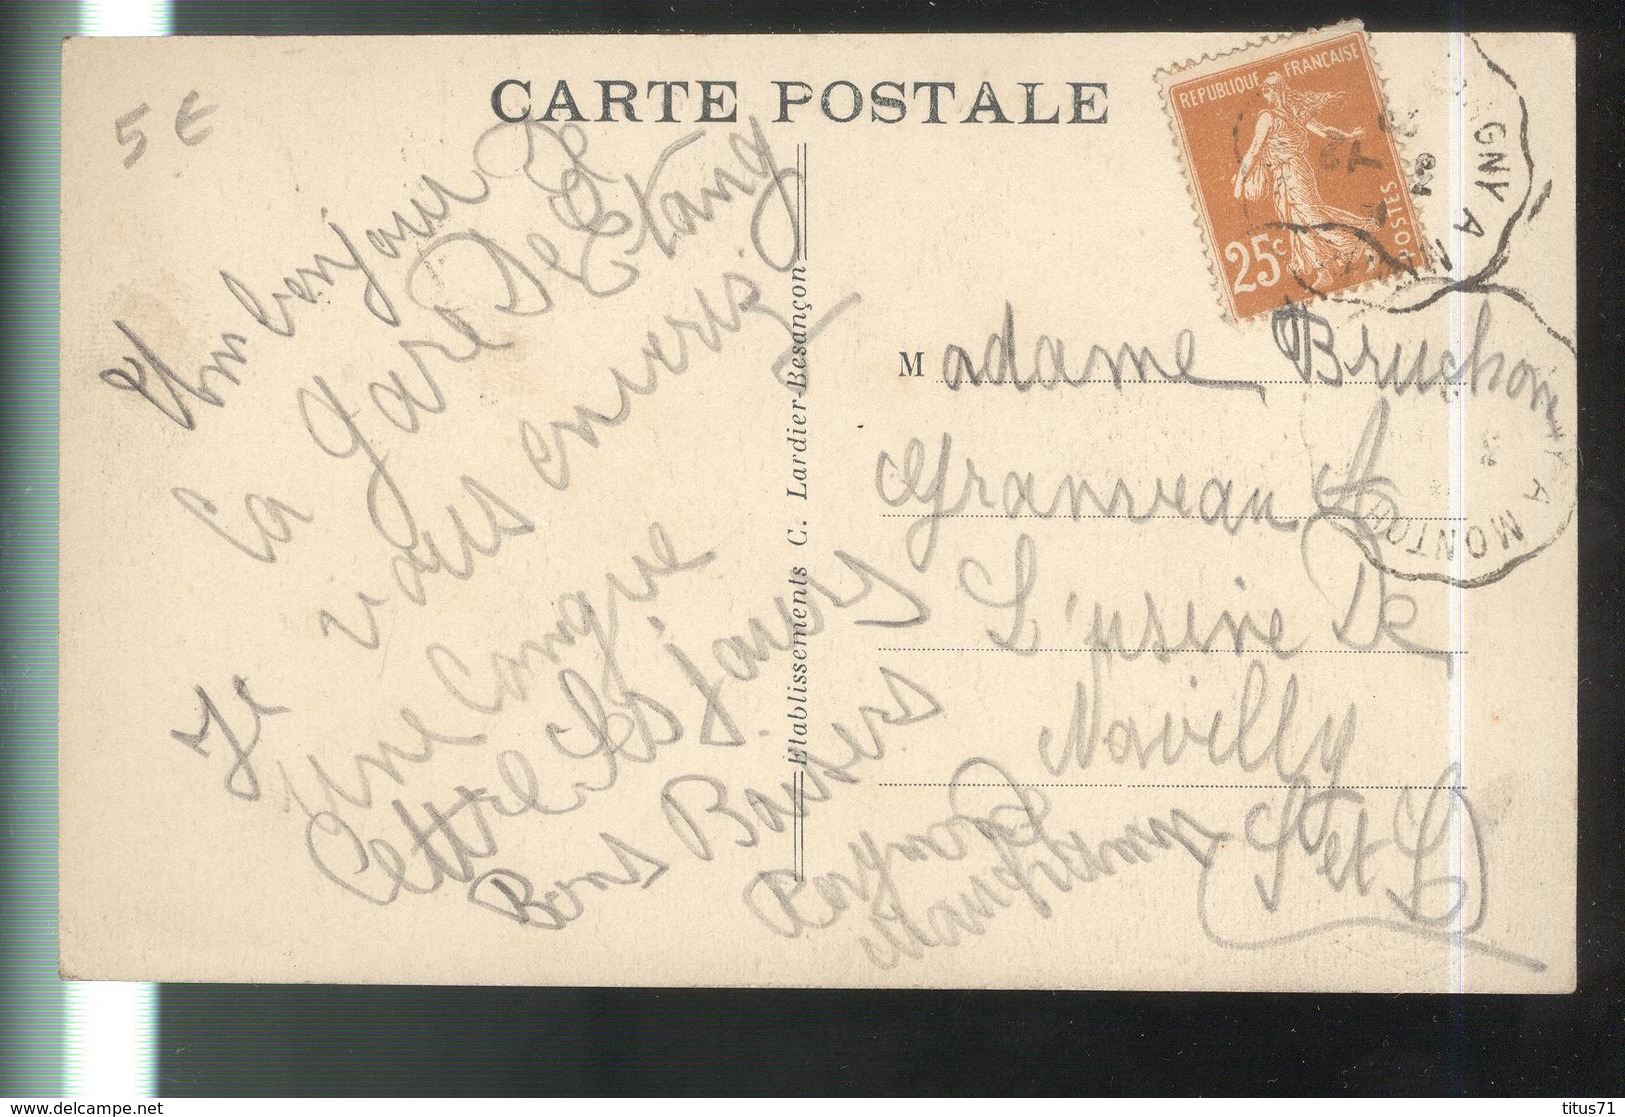 5 €
CARTE POSTALE
REPUBLIQUE FRANÇAISE
25c
POSTES
A MONTCH
Un bonjour De
la gare De Etang
Je vous enverrez
une longue
lettre les jours
Bons Baisers
Raymond
Etablissements C. Lardier-Besançon
Madame Bruchon
L'usine De
Navilly
S et L
titus71